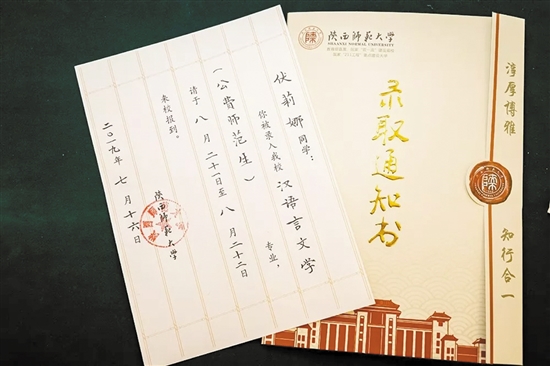 伏莉娜同学：
你被录入我校汉语言文学专业，
（公费师范生）
请于八月二十一日至八月二十二日
来校报到。
陕西师范大学
二〇一九年七月十六日
陕西师范大学
SHAANXI NORMAL UNIVERSITY
录取通知书
淳厚博雅
知行合一